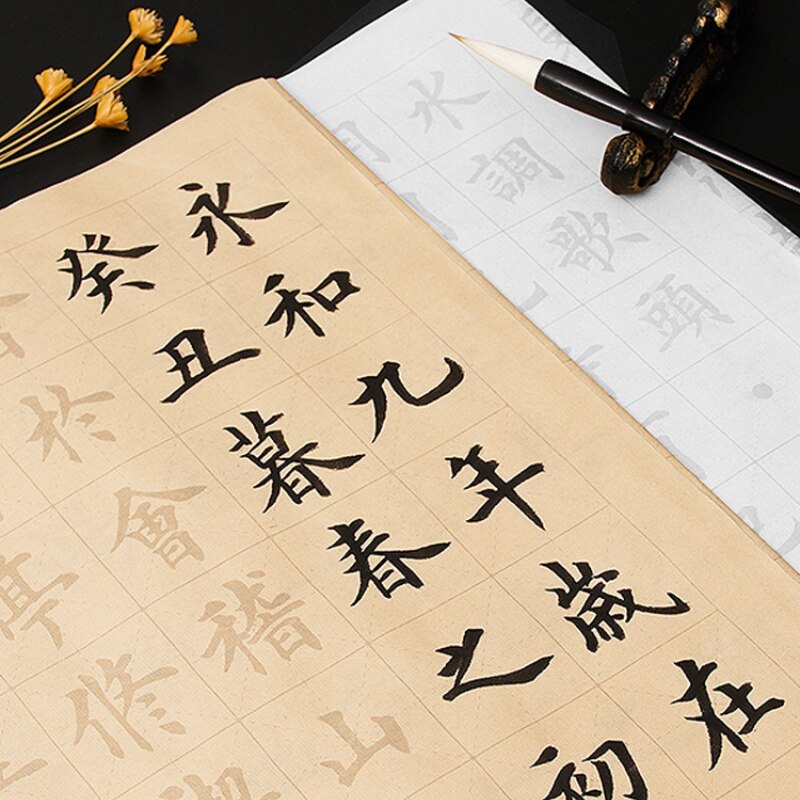 水調歌頭
永和九年歲在
癸丑暮春之初
於會稽山
亭修